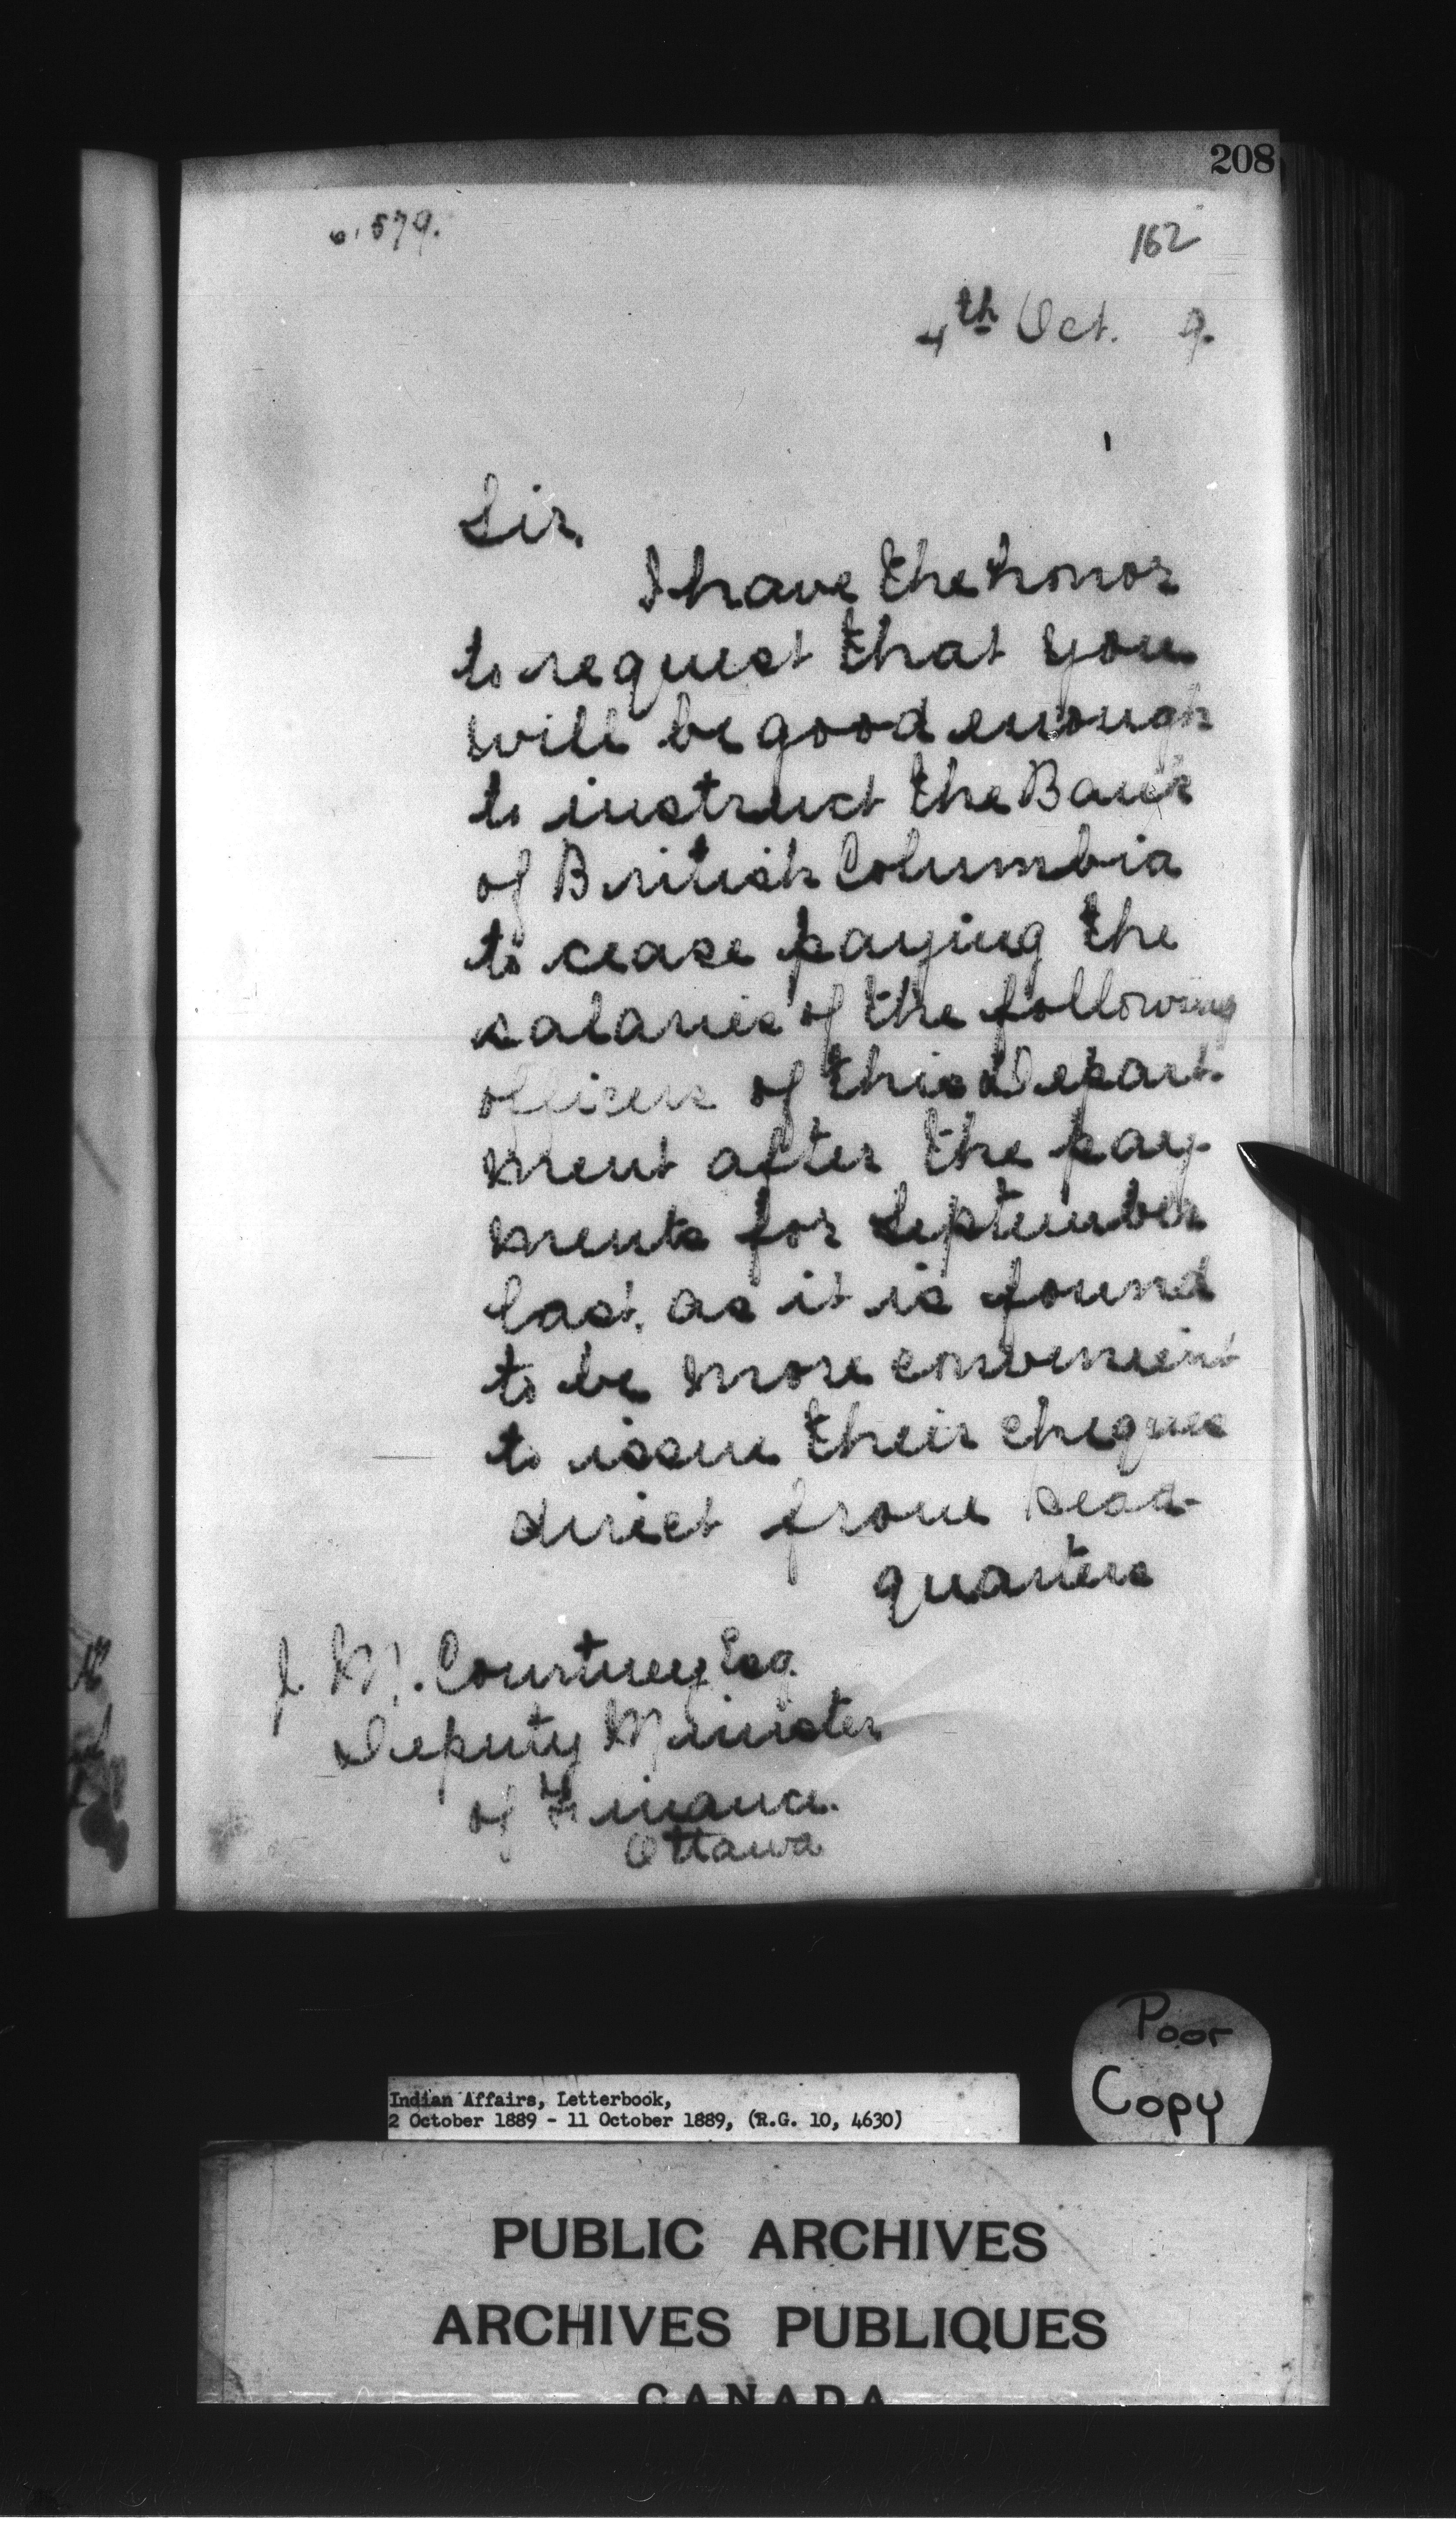 208
162
4th Oct. 9.
Sir,
I have the honor
to request that you
will be good enough
to instruct the Bank
of British Columbia
to cease paying the
salaries of the following
officers of this Depart
ment after the pay-
ments for September
last, as it is found
to be more convenient
to issue their cheques
direct from Head-
quarters
J. M. Courtney Esq.
Deputy Minister
of Finance.
Ottawa
Poor
Copy
Indian Affairs, Letterbook,
2 October 1889 - 11 October 1889, (R.G. 10, 4630)
PUBLIC ARCHIVES
ARCHIVES PUBLIQUES
CANADA